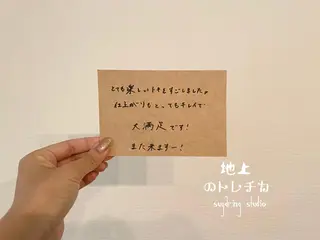 とても楽しいトキをすごしました。
仕上がりもとってもキレイで
大満足です!
また来ますー!
地上
のトレチカ